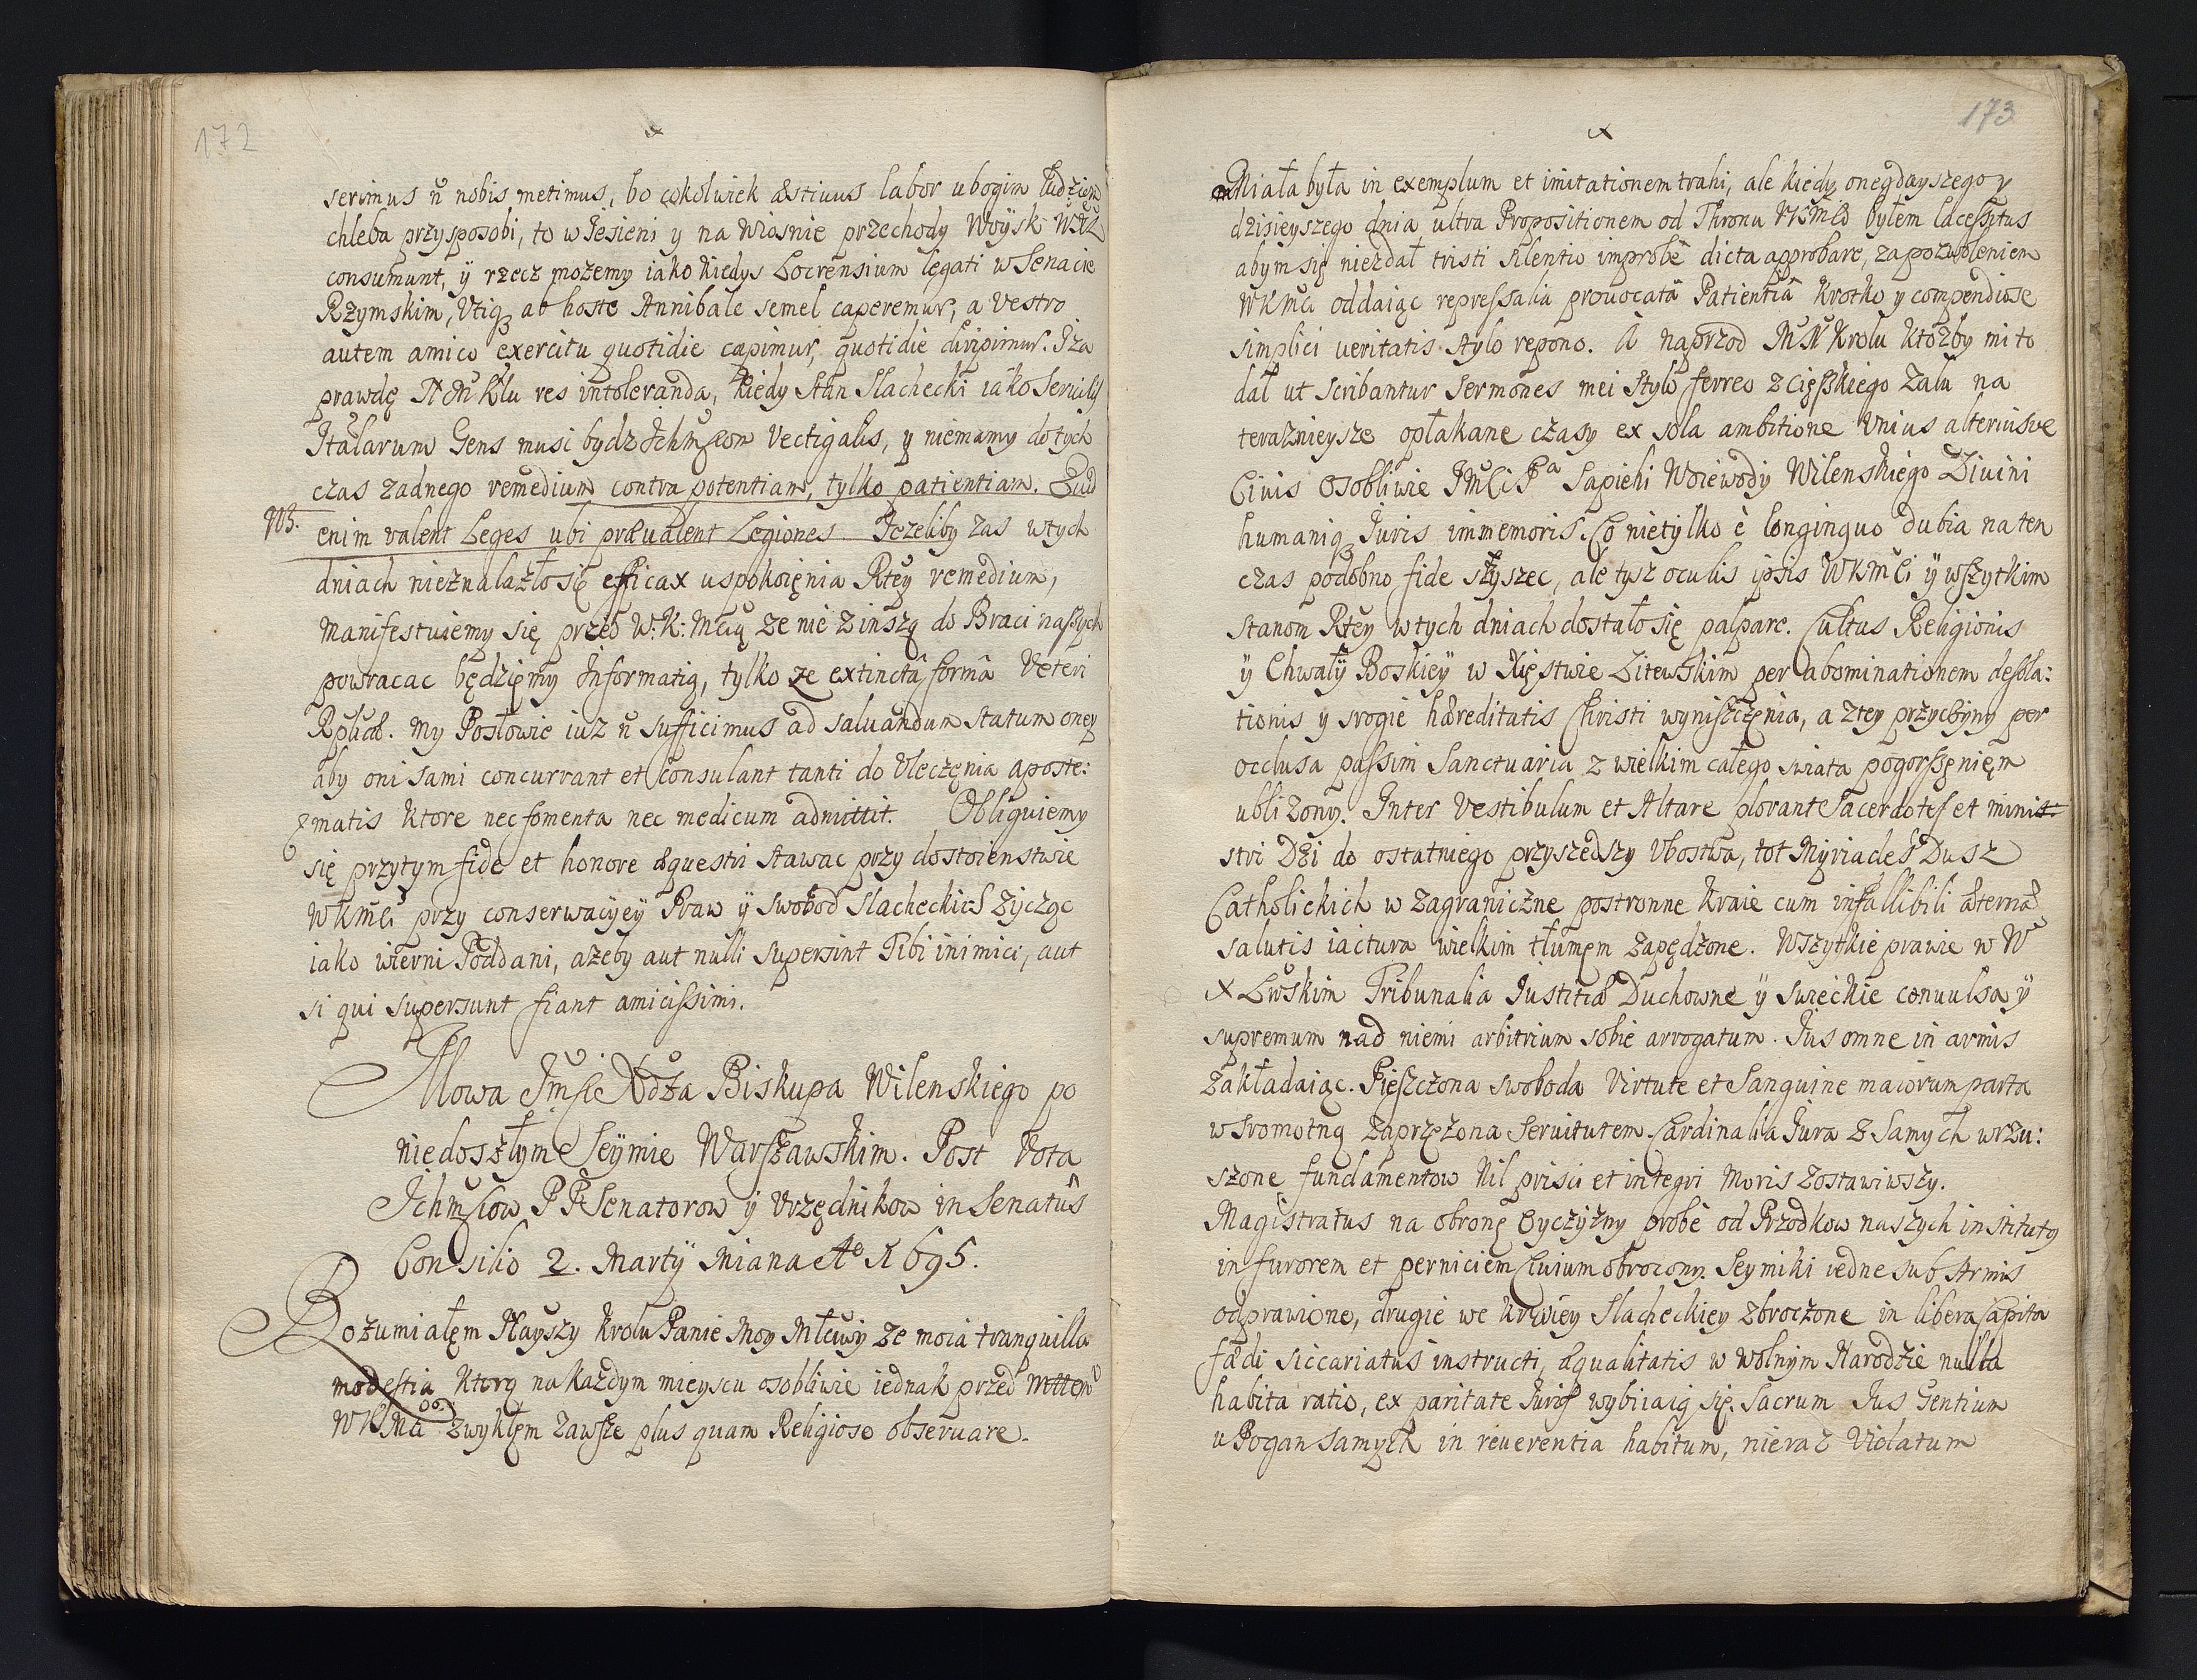 172
serimus ñ nobis metimus, bo cokolwiek æstiuus labor ubogim ludziem
chleba przysposobi, to w Jesieni y na wiosnie przechody Woysk WXL
consumunt, ÿ rzecz mozemy iako kiedys Locrensium legati w Senacie
Rzymskim, Vtiq₃ ab hoste Annibale semel caperemur, a vestro
autem amico exercitu quotidie capimur, quotidie diripimur. I za
prawdę NM Klu res intoleranda, kiedy Stan Slachecki iako Seruilis
Italarum Gens musi bydz Ichmsciom Vectigalis, y niemamy do tych
czas zadnego remedium contra potentiam, tylko patientiam. Quid
NB. enim valent Leges ubi præualent Legiones. Jezeliby zas w tych
dniach nieznalazło się efficax uspokoięnia Rtey remedium,
Manifestuiemy się przed W: K: Mcią ze nie z inszą do Braci naszych
powracac będzięmy Informatią, tylko ze extinctâ formâ Veteri
Rpuce. My Posłowie iuz ñ sufficimus ad saluandum statum oney
aby oni sami concurrant et consulant tanti do Vleczęnia aposte:
matis ktore nec fomenta nec medicum admittit. Obliguiemy
się przytym fide et honore æquestri stawac przy dostoienstwie
WKMCi przy conserwacÿeÿ Praw ÿ swobod Slacheckich zycząc
iako wierni Poddani, azeby aut nulli supersint Tibi inimici, aut
si qui supersunt fiant amicissimi.
Mowa Jmsci Xdza Biskupa Wilenskiego po
niedoszłym Seÿmie Warszawskim. Post Vota
Ichmsciow PP Senatorow ÿ Vrzędnikow in Senatûs
Consilio 2. Martÿ Miana Ao 1695.
Rozumiałem Nayszy Krolu Panie moy Mlciwy ze moia tranquilla
modestia ktorą na kazdym mieyscu osobliwie iednak przed Mttem
WKMci zwykłem zawsze plus quam Religiose obseruare.
173
Miała była in exemplum et imitationem trahi, ale kiedy onegdayszego y
dzisieyszego dnia ultra Propositionem od Thronu WKMCi byłem lacessitus
abym się niezdał tristi silentio improbè dicta approbare, za pozwoleniem
WKMCi oddaiąc repressalia prouocatâ Patientiâ krotko y compendiose
simplici veritatis stylo repono. A naprzod NM Krolu ktozby mi to
dał ut scribantur sermones mei stylo ferreo z cięszkiego zalu na
teraznieysze opłakane czasy ex sola ambitione Vnius alteriusve
Ciuis osobliwie JMCi Pa Sapiehi Woiewody Wilenskiego Diuini
humaniq₃ Juris immemoris. Co nietylko è longinquo dubia na ten
czas podobno fide słyszec, ale tysz oculis ipsis WKMCi ÿ wszytkim
stanom Rtey w tych dniach dostało się palpare. Cultus Religionis
ÿ Chwały Boskieÿ w Xięstwie Litewskim per abominationem desola:
tionis y srogie hæreditatis Christi wyniszczęnia, a z tey przyczyny per
occlusa passim Sanctuaria z wielkim całego swiata pogorszęnięm
ublizony. Inter Vestibulum et Altare plorant Sacerdotes et mini
stri Dei do ostatniego przyszedszy Vbostwa, tot Myriades Dusz
Catholickich w zagraniczne postronne kraie cum infallibili æternæ
salutis iactura wielkim tłumęm zapędzone. Wszytkie prawie w W
X Lwskim Tribunalia Justitiæ Duchowne ÿ swieckie conuulsa ÿ
supremum nad niemi arbitrium sobie arrogatum. Jus omne in armis
zakładaiąc. Pieszczona swoboda Virtute et Sanguine maiorum parta
w sromotną zaprzęzona Seruitutem. Cardinalia Jura z samych wrzu:
szone fundamentow Nil prisci et integri Moris zostawiwszy.
Magistratus na obronę Oyczyzny probè od Przodkow naszych instituty
in furorem et perniciem Ciuium obrocony. Seymiki iedne sub Armis
odprawione, drugie we krwiey Slacheckiey zbroczone in libera Capita
fædi siccariatûs instructi, æqualitatis w wolnym Narodzie nulla
habita ratio, ex paritate Juris wybiiaią się. Sacrum Jus Gentium
u Pogan samych in reuerentia habitum, nieraz Violatum